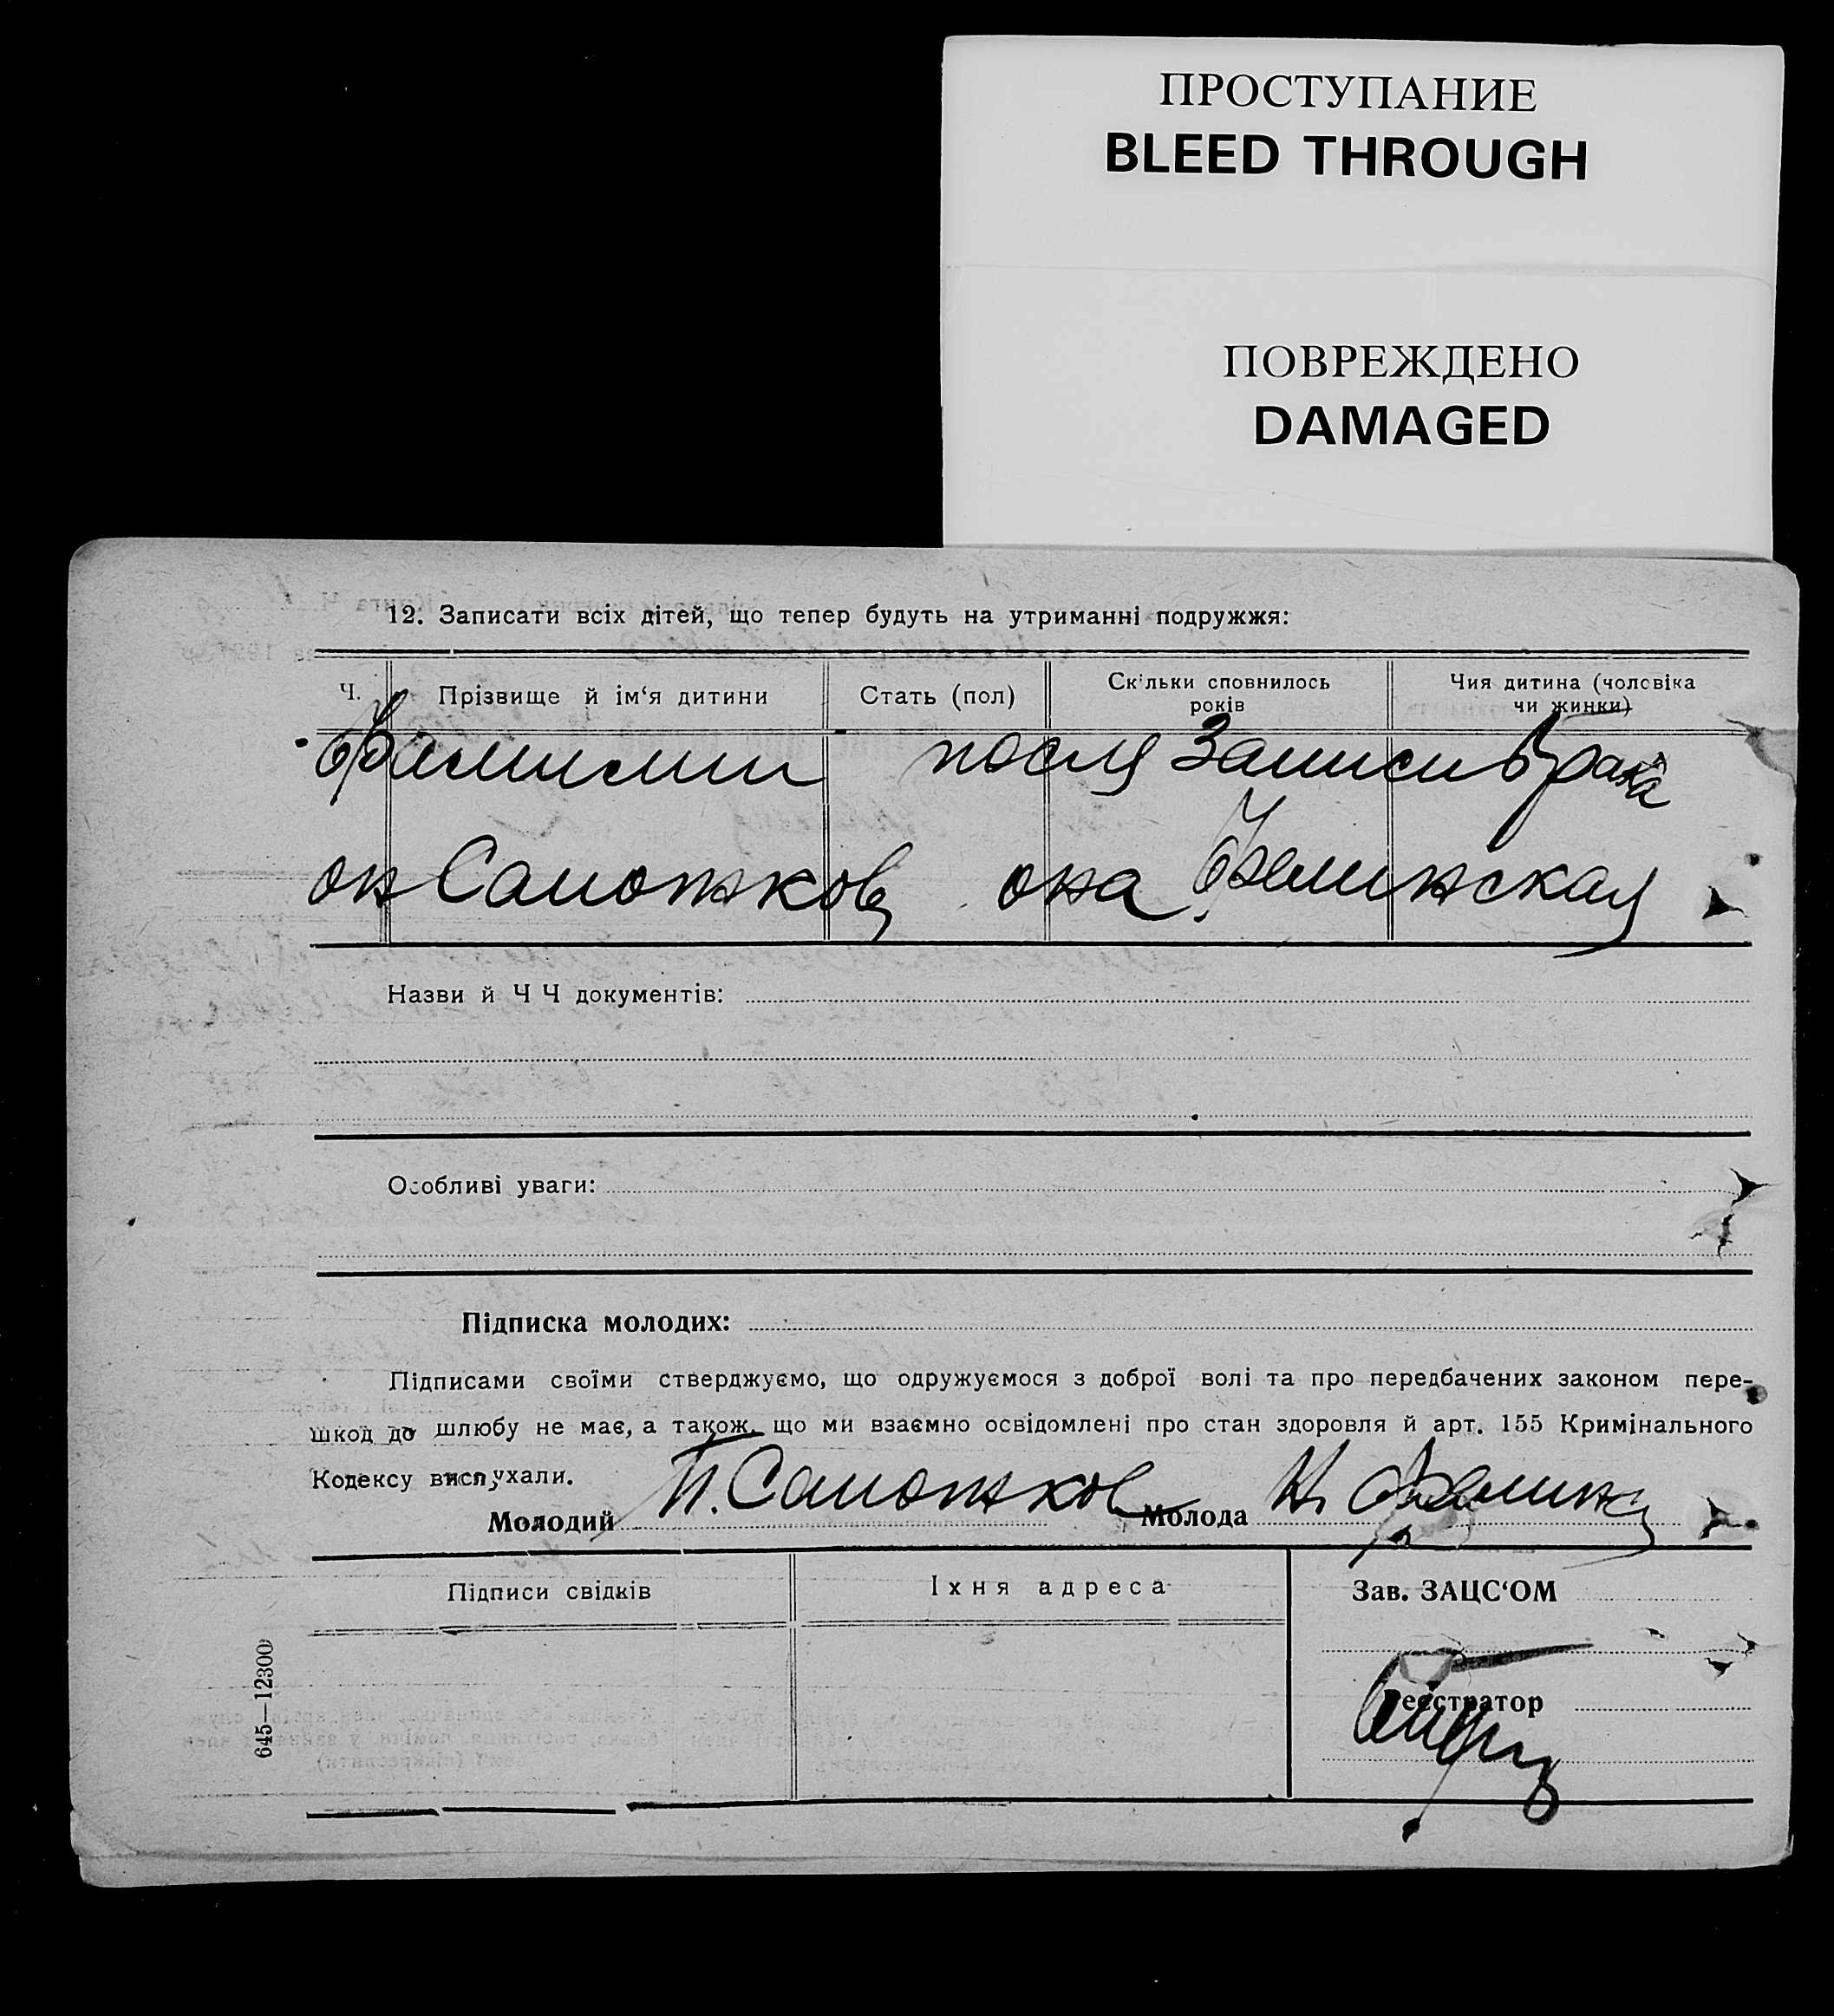 ПРОСТУПАНИЕ
BLEED THROUGH
ПОВРЕЖДЕНО
DAMAGED
12. Записати всіх дітей, що тепер будуть на утриманні подружжя:
Ч.
Прізвище й ім‘я дитини
Стать (пол)
Скільки сповнилось
років
Чия дитина (чоловіка
чи жинки)
Фамилии после Записи Брака
он Сапотков она
Назви й Ч Ч документів:
Особливі уваги:
Підписка молодих:
Підписами своїми стверджуємо, що одружуємося з доброї волі та про передбачених законом пере-
шкод до шлюбу не має, а також, що ми взаємно освідомлені про стан здоровля й арт. 155 Кримінального
Кодексу вислухали.
Молодий П. Сапотков Молода
Підписи свідків
Їхня адреса
Зав. ЗАЦС‘ОМ
Реєстратор
645—12300